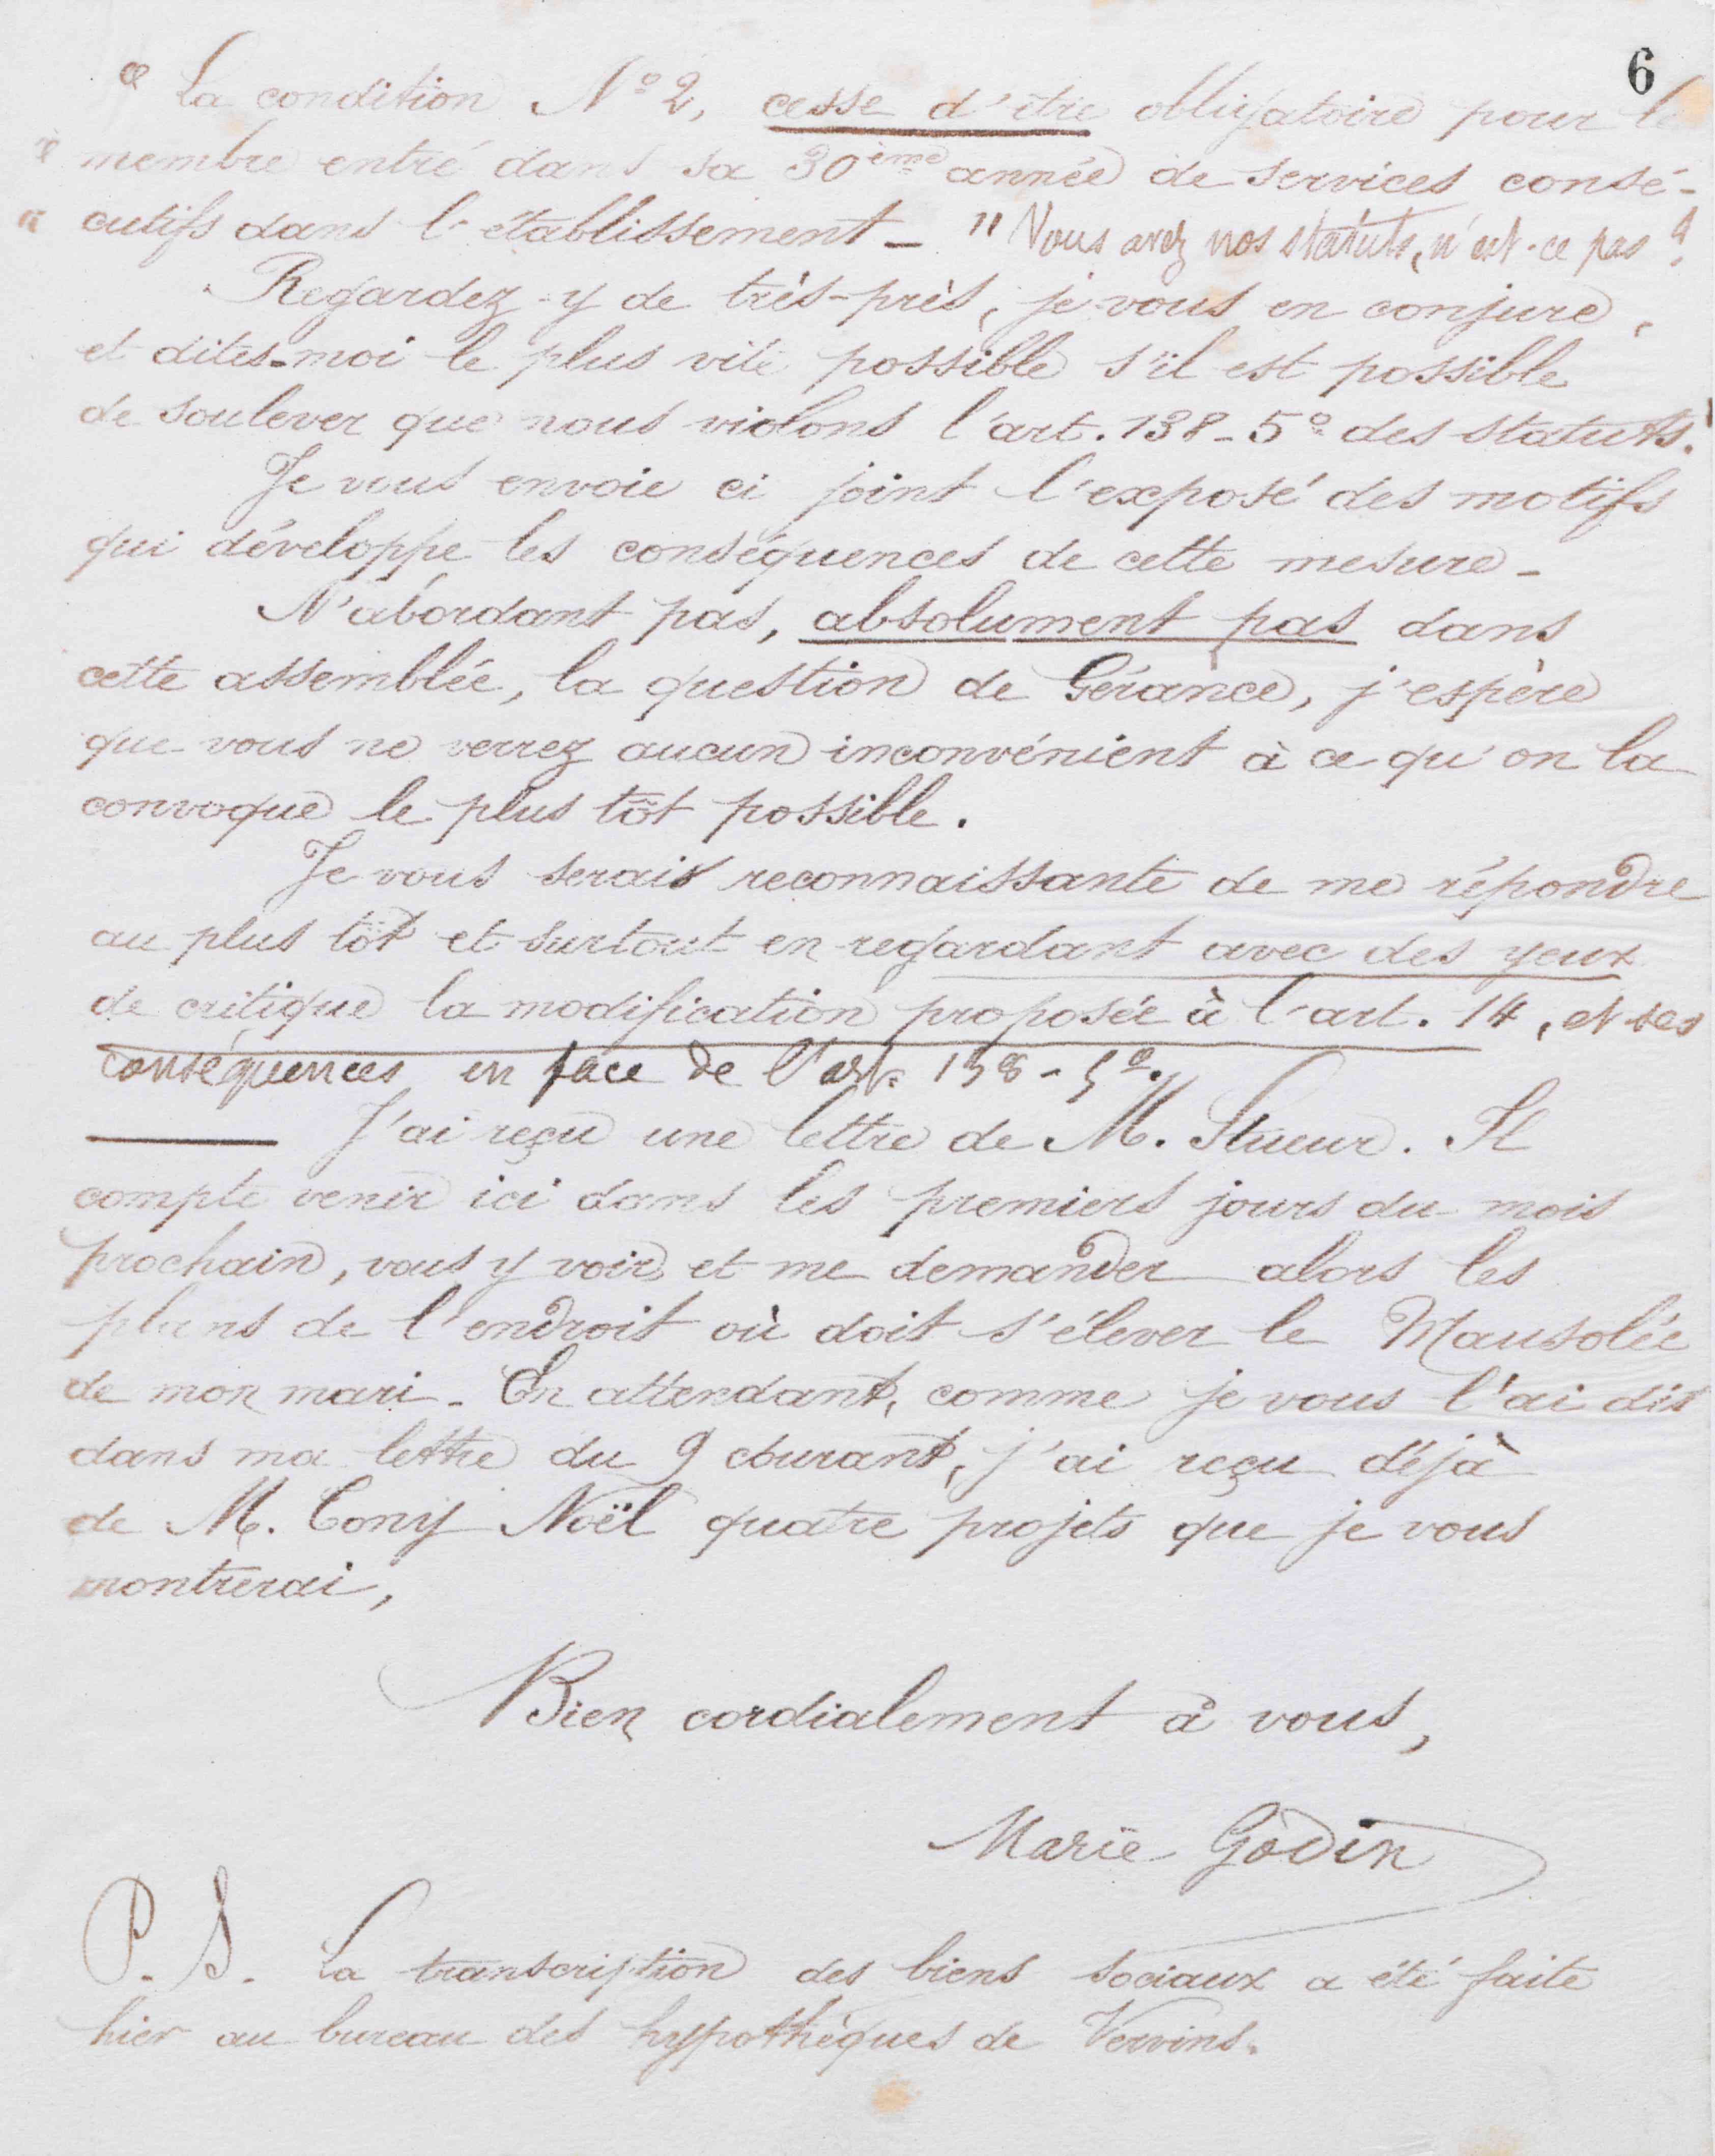 6
« La condition N° 2, cesse d'être obligatoire pour le
« membre entré dans sa 30ème année de services consé-
« cutifs dans l'établissement – " Vous avez nos statuts, n'est-ce pas ?
Regardez-y de très-près, je vous en conjure,
et dites-moi le plus vite possible s'il est possible
de soulever que nous violons l'art. 138-5° des statuts.
Je vous envoie ci joint l'exposé des motifs
qui développe les conséquences de cette mesure –
N'abordant pas, absolument pas dans
cette assemblée, la question de Gérance, j'espère
que vous ne verrez aucun inconvénient à ce qu'on la
convoque le plus tôt possible.
Je vous serais reconnaissante de me répondre
au plus tôt et surtout en regardant avec des yeux
de critique la modification proposée à l'art. 14, et ses
conséquences en face de l'art. 138-5°.
J'ai reçu une lettre de M. . Il
compte venir ici dans les premiers jours du mois
prochain, vous y voir, et me demander alors les
plans de l'endroit où doit s'élever le Mausolée
de mon mari – En attendant, comme je vous l'ai dit
dans ma lettre du 9 courant, j'ai reçu déjà
de M. Tony Noël quatre projets que je vous
montrerai,
Bien cordialement à vous,
Marie Godin
P. S. La transcription des biens sociaux a été faite
hier au bureau des hypothèques de Vervins.